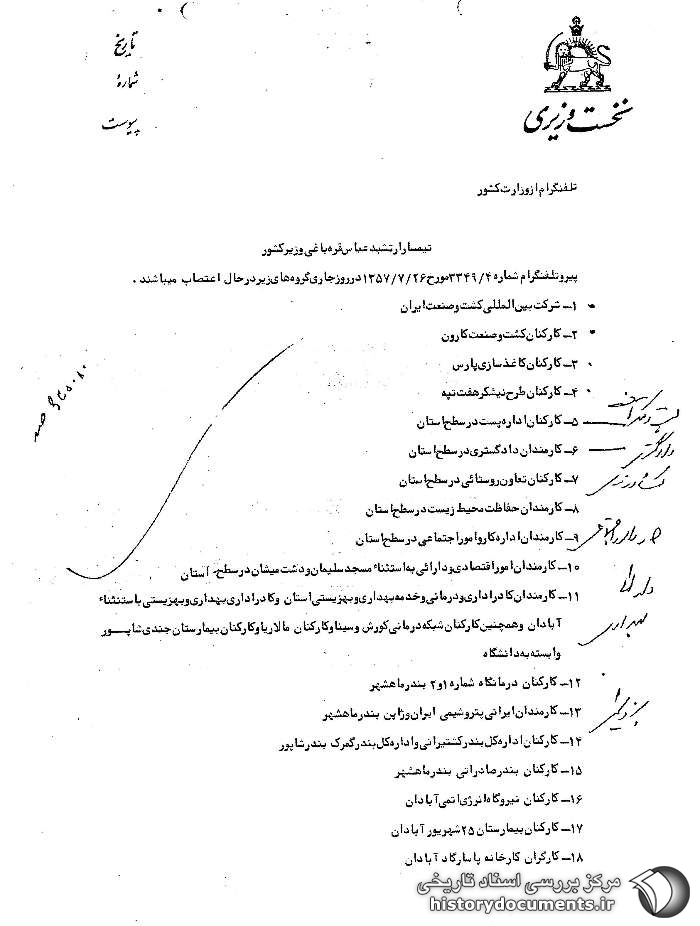 نخست وزیری
تاریخ
شمارهٔ
پیوست
تلفنگرام از وزارت کشور
تیمسار ارتشبد عباس قره باغی وزیر کشور
پیرو تلفنگرام شماره ۳۳۴۹/۴ مورخ ۱۳۵۷/۷/۲۶ در روز جاری گروه های زیر در حال اعتصاب میباشند .
۱ــ شرکت بین المللی کشت و صنعت ایران
۲ــ کارکنان کشت و صنعت کارون
۳ــ کارکنان کاغذ سازی پارس
۴ــ کارکنان طرح نیشکر هفت تپه
۵ــ کارکنان اداره پست در سطح استان
۶ــ کارمندان دادگستری در سطح استان
دادگستری
۷ــ کارکنان تعاون روستائی در سطح استان
کشاورزی
۸ــ کارمندان حفاظت محیط زیست در سطح استان
۹ــ کارمندان اداره کار و امور اجتماعی در سطح استان
۱۰ــ کارمندان امور اقتصادی و دارائی به استثناء مسجد سلیمان و دشت میشان در سطح استان
دارائی
۱۱ــ کارمندان کادر اداری و درمانی و خدمه بهداری و بهزیستی استان و کادر اداری بهداری و بهزیستی باستنثناء
آبادان و همچنین کارکنان شبکه درمانی کورش و سینا و کارکنان مالاریا و کارکنان بیمارستان جندی شاپور
بهداری
وابسته به دانشگاه
۱۲ــ کارکنان درمانگاه شماره ۱ و ۲ بندر ماهشهر
۱۳ــ کارمندان ایرانی پتروشیمی ایران و ژاپن بندر ماهشهر
۱۴ــ کارکنان اداره کل بندر کشتیرانی و اداره کل بندر گمرک بندر شاپور
۱۵ــ کارکنان بندر صادراتی بندر ماهشهر
۱۶ــ کارکنان نیروگاه انرژی اتمی آبادان
۱۷ــ کارکنان بیمارستان ۲۵ شهریور آبادان
۱۸ــ کارگران کارخانه پاسارگاد آبادان
مرکز بررسی اسناد تاریخی
historydocuments.ir